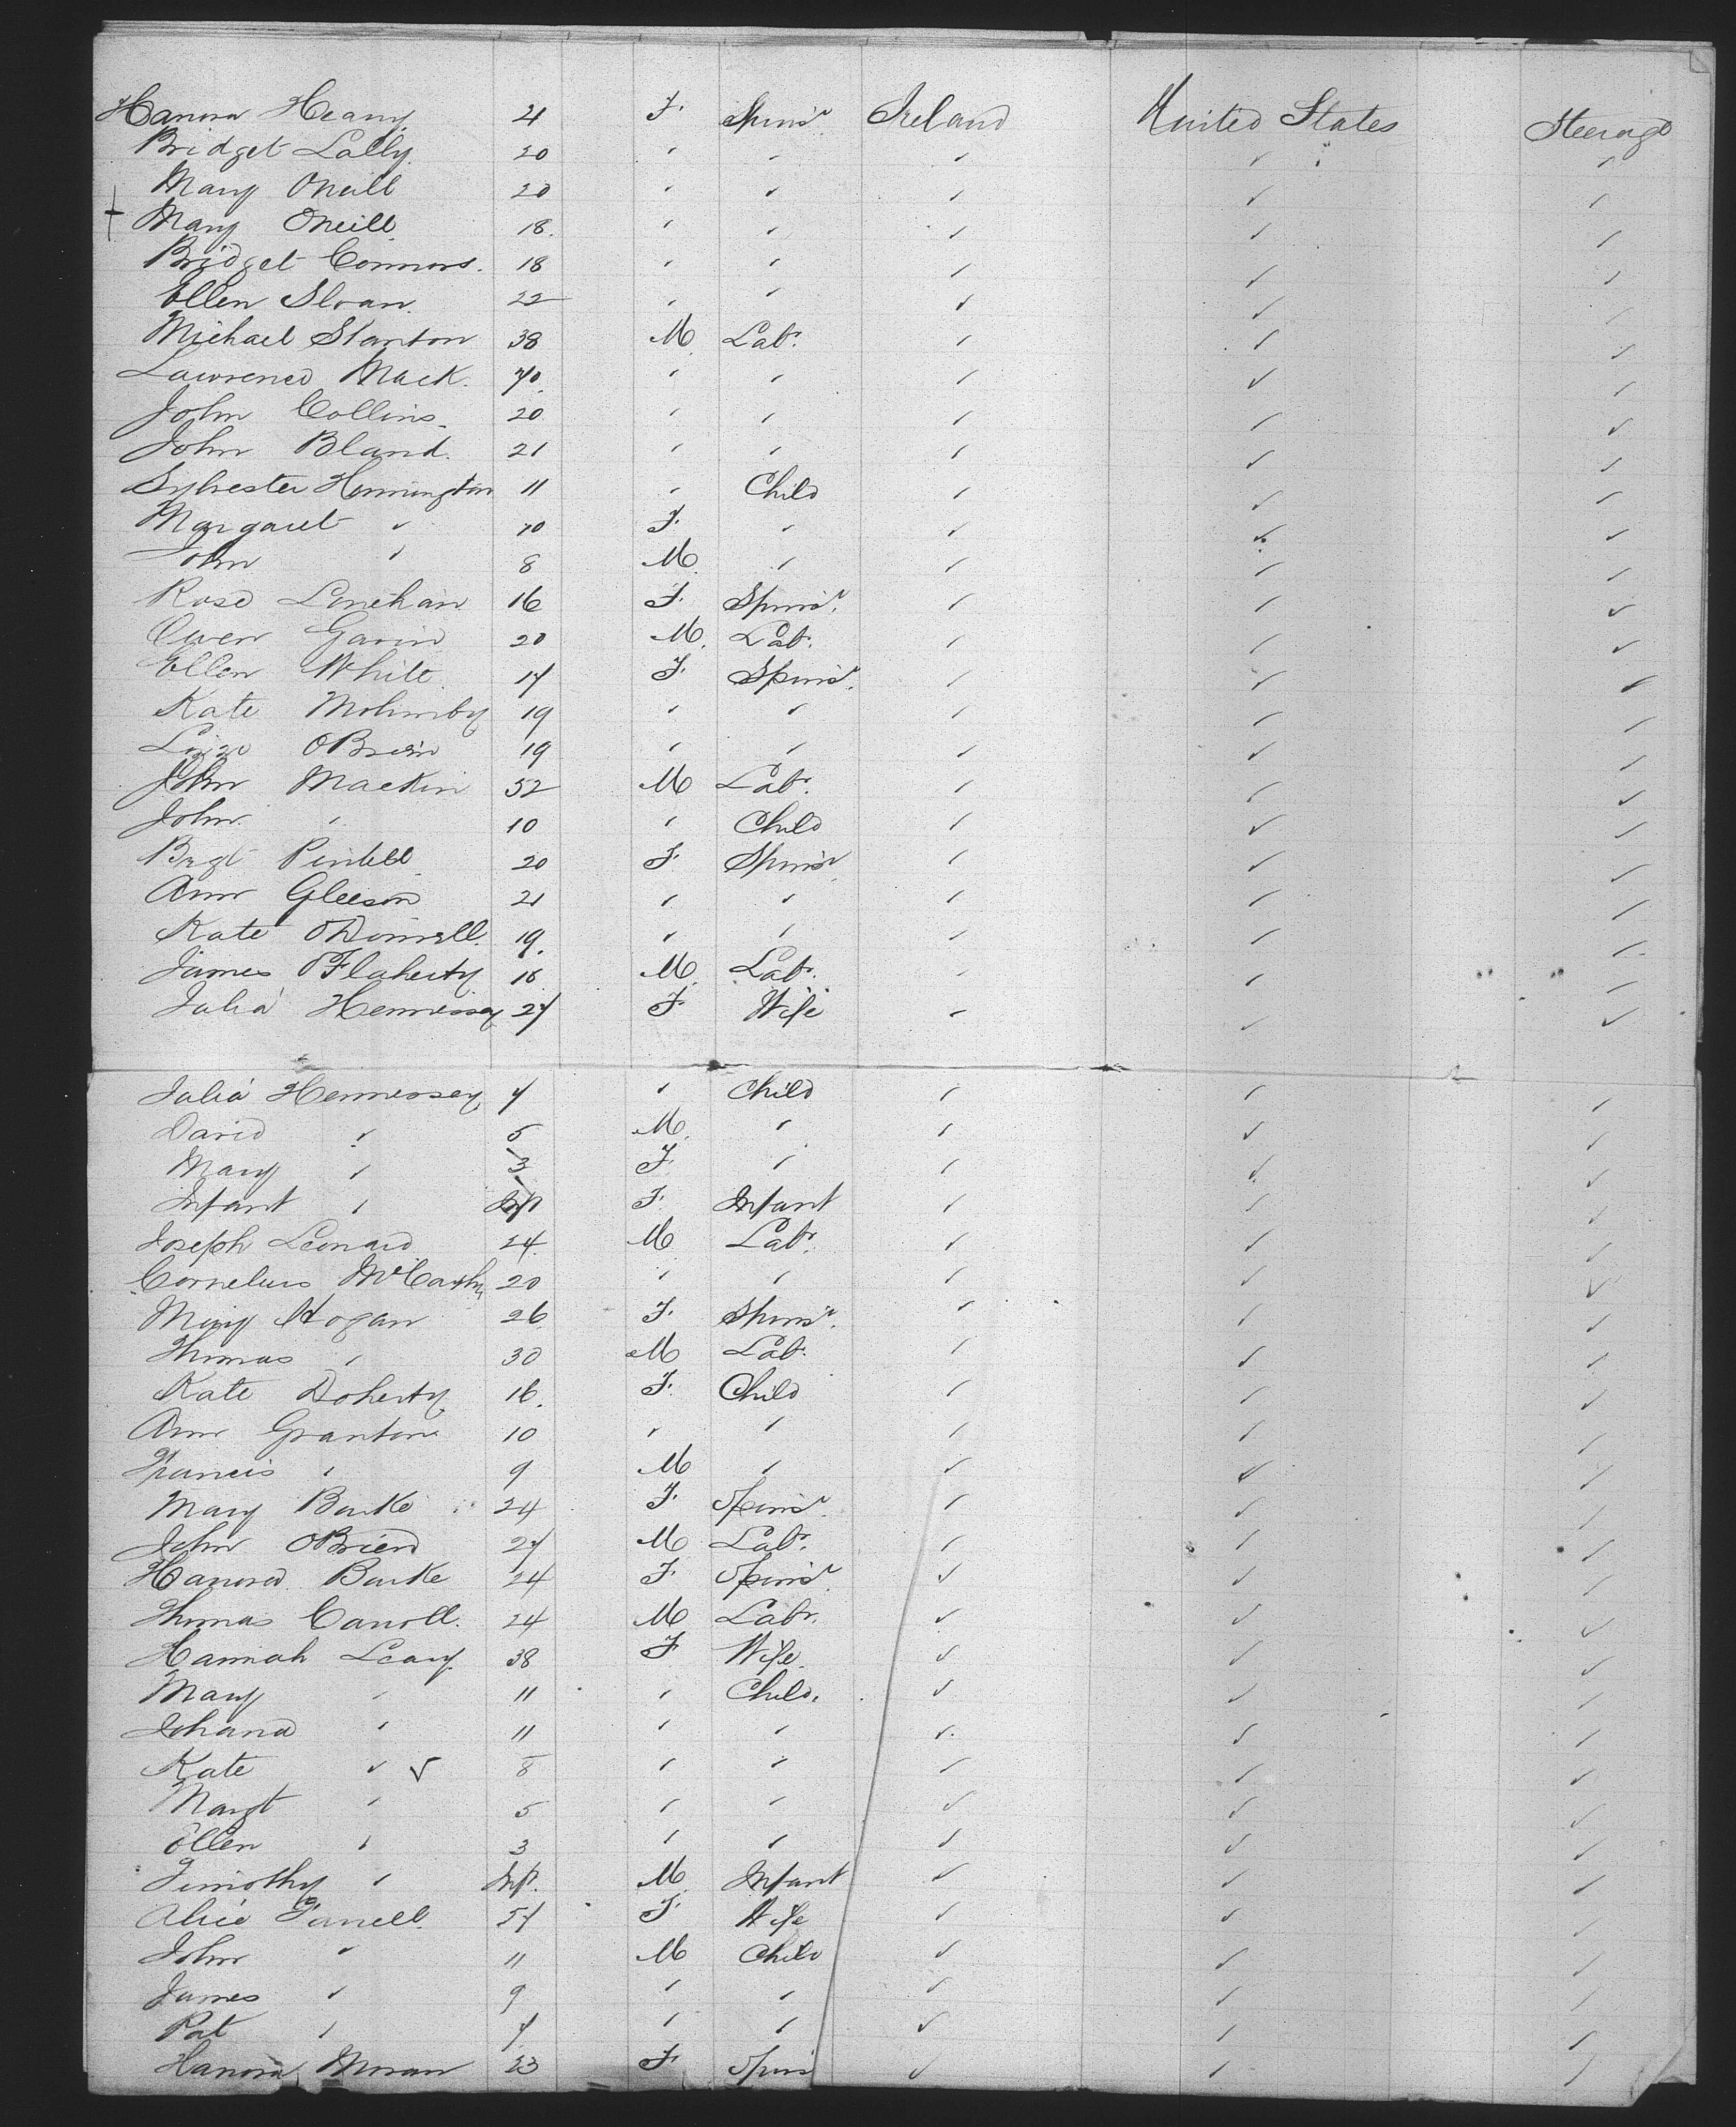 Hanora Heany 21 F. Spinsr. Ireland United States Steerage
Bridget Lally 20 " " " " "
Mary ONeill 20 " " " " "
+ Mary ONeill 18 " " " " "
Bridget Connors. 18 " " " " "
Ellen Sloan 22 " " " " "
Michael Stanton 38 M Labr. " " "
Lawrence Mack. 40 " " " " "
John Collins 20 " " " " "
John Bland. 21 " " " " "
Sylvester Hennington 11 " Child " " "
Margaret " 10 F. " " " "
John " 8 M. " " " "
Rose Lenehan 16 F. Spinsr. " " "
Owen Gavin 20 M. Labr. " " "
Ellen White 17 F. Spinsr. " " "
Kate 19 " " " " "
OBrien 19 " " " " "
John Mackin 52 M Labr. " " "
John " 10 " Child " " "
Brgt 20 F. Spinsr. " " "
Ann Gleeson 21 " " " " "
Kate ODonnell. 19. " " " " "
James OFlaherty 18 M. Labr. " " "
Julia Hennessey 27 F. Wife " " "
Julia Hennessey 7 " Child " " "
David " 5 M. " " " "
Mary " 3 F. " " " "
Infant " Inft F. Infant " " "
Joseph Leonard 24 M Labr. " " "
Cornelius McCarthy 20 " " " " "
Mary Hogan 26 F. Spinsr. " " "
Thomas " 30 M Labr. " " "
Kate Doherty 16. F. Child " " "
Ann Granton 10 " " " " "
Francis " 9 M " " " "
Mary Burke 24 F. Spinsr. " " "
John OBrien 27 M Labr. " " "
Hanora Burke 24 F. Spinsr. " " "
Thomas Carroll. 24 M Labr. " " "
Hannah Leary 38 F. Wife. " " "
Mary " 11 " Child. " " "
Johana " 11 " " " " "
Kate " ✓ 8 " " " " "
Margt " 5 " " " " "
Ellen " 3 " " " " "
Timothy " Inft. M. Infant " " "
Alice Farrell. 37 F. Wife " " "
John " 11 M Child " " "
James " 9 " " " " "
Pat " 7 " " " " "
Hanora Moran 23 F. Spins " " "